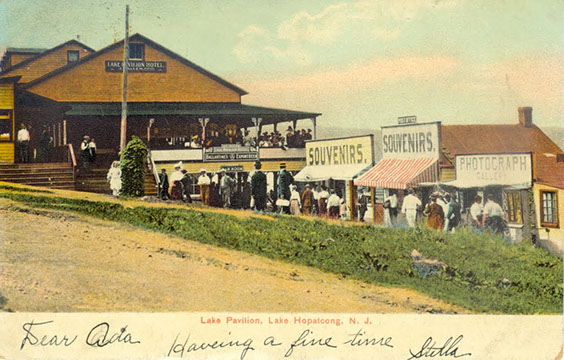 LAKE PAVILION HOTEL
SOUVENIRS.
SOUVENIRS.
PHOTOGRAPH
GALLERY
Lake Pavilion, Lake Hopatcong, N. J.
Dear Ada Haveing a fine time Stella